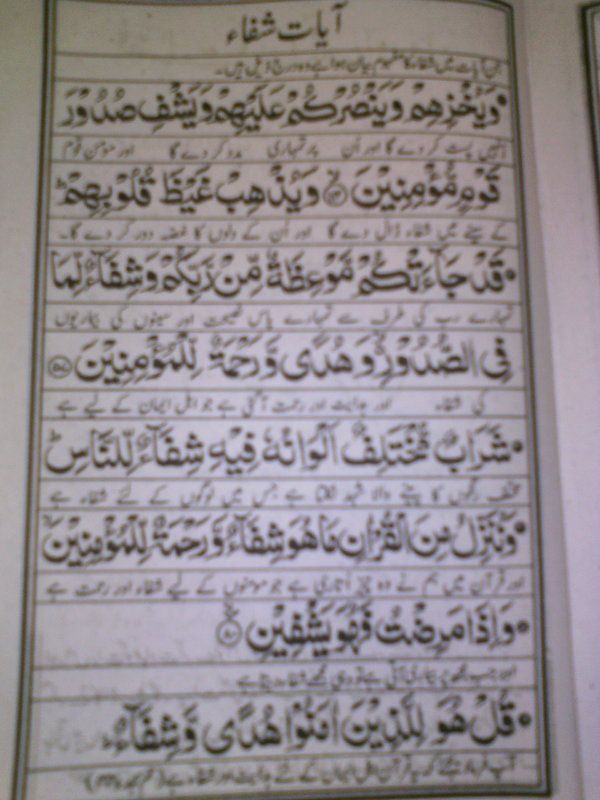 آیات شفاء
جن آیات میں شفاء کا مفہوم بیان ہوا ہے وہ درج ذیل ہیں۔
• وَيُخْزِهِمْ وَيَنْصُرْكُمْ عَلَيْهِمْ وَيَشْفِ صُدُورَ
انہیں پست کر دے گا اور اُن پر تمہاری مدد کر دے گا اور مومن قوم
قَوْمٍ مُّؤْمِنِينَ ۝۱۴ وَيُذْهِبْ غَيْظَ قُلُوبِهِمْ ط
کے سینے میں شفاء ڈال دے گا اور اُن کے دلوں کا غصہ دور کر دے گا۔
• قَدْ جَآءَتْكُمْ مَّوْعِظَةٌ مِّنْ رَّبِّكُمْ وَشِفَآءٌ لِّمَا
تمہارے رب کی طرف سے تمہارے پاس نصیحت اور سینوں کی بیماریوں
فِى الصُّدُوْرِ وَهُدًى وَّرَحْمَةٌ لِّلْمُؤْمِنِيْنَ ۝۵۷
کی شفاء اور ہدایت اور رحمت آ گئی ہے جو اہل ایمان کے لیے ہے
• شَرَابٌ مُّخْتَلِفٌ اَلْوَانُهٗ فِيْهِ شِفَآءٌ لِّلنَّاسِ ط
مختلف رنگوں کا پینے والا شہد ہے جس میں لوگوں کے لئے شفاء ہے
• وَنُنَزِّلُ مِنَ الْقُرْاٰنِ مَا هُوَ شِفَآءٌ وَّرَحْمَةٌ لِّلْمُؤْمِنِيْنَ
اور قرآن میں ہم نے وہ چیز اُتاری ہے جو مومنوں کے لیے شفاء اور رحمت ہے
• وَاِذَا مَرِضْتُ فَهُوَ يَشْفِيْنِ ۝۸۰
اور جب مجھ پر بیماری آتی ہے تو وہی مجھے شفاء دیتا ہے
• قُلْ هُوَ لِلَّذِيْنَ اٰمَنُوْا هُدًى وَّشِفَآءٌ
آپ فرما دیجئے کہ یہ قرآن اہل ایمان کے لئے ہدایت اور شفاء ہے